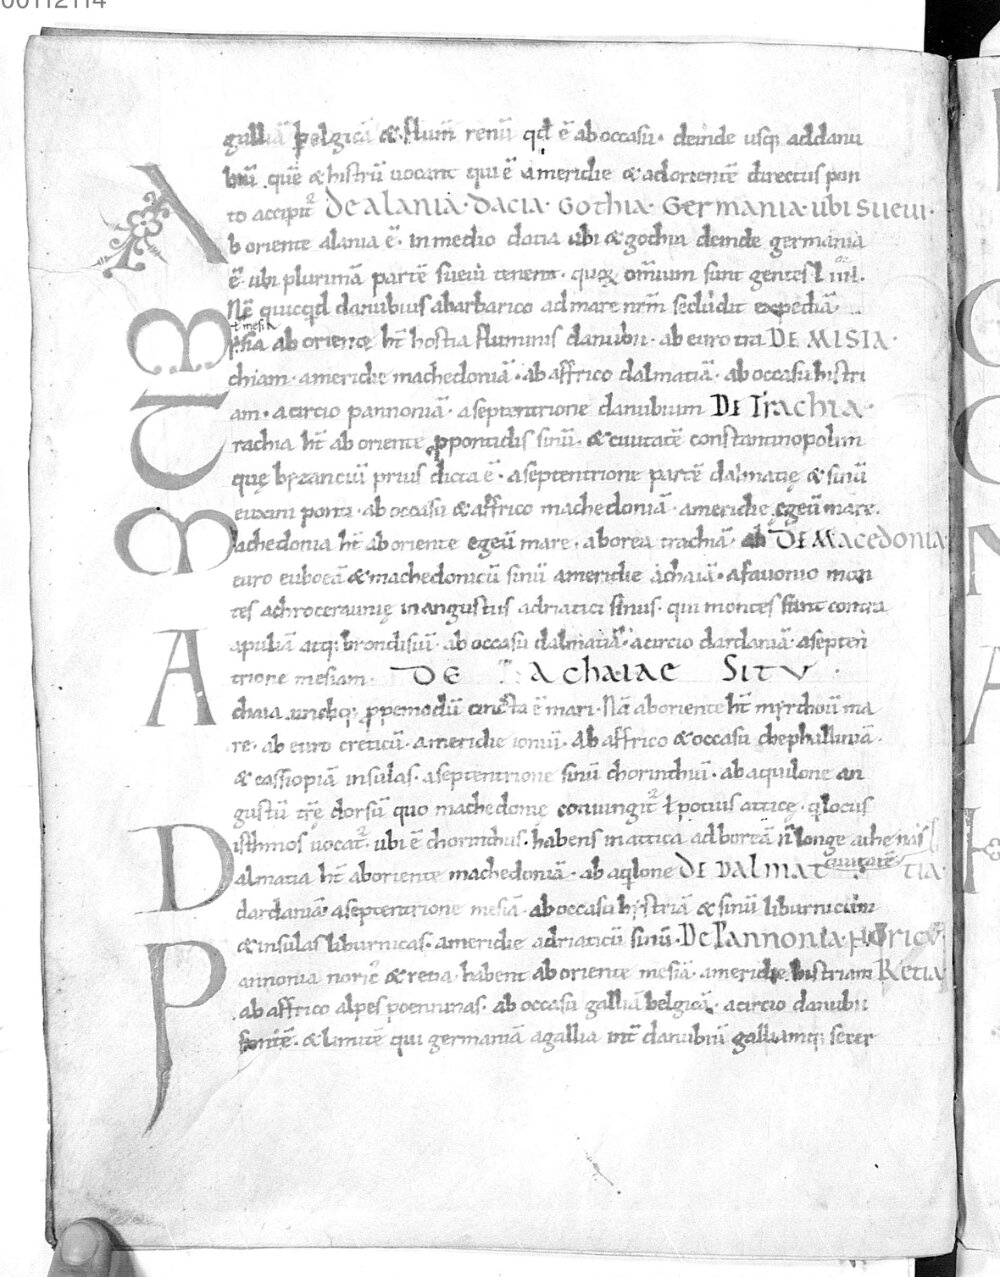 00112114
galliā belgicā & flum̄ renū qd̄ ē ab occasu · deinde usq; ad danu
biū quē & histrū uocant qui ē a meridie & ad orientē directus pon
to accipit̄ De alania · dacia · Gothia · Germania · ubi sueui ·
Ab oriente alania ē · in medio datia ubi & gothia deinde germania
ē · ubi plurimā partē sueui tenent · quoꝝ omnium sunt gentes l iiii ·
Nē quicqd danubius a barbarico ad mare nrm̄ secludit expediā
ł mesia
Messia ab oriente ht̄ hostia fluminis danubii · ab euro tra De Misia ·
chiam · a meridie machedoniā · ab affrico dalmatiā · ab occasu histri
am · a circio pannoniā · a septentrione danubium De Trachia ·
Trachia ht̄ ab oriente ꝓpontidis sinū · & ciuitatē constantinopolim
quę bẏzanciū prius dicta ē · a septentrione partē dalmatię & sinū
euxini ponti · ab occasu & affrico machedoniā · a meridie egeū mare ·
Machedonia ht̄ ab oriente egeū mare · a borea trachiā · ab De Macedonia
euro euboeā & machedonicū sinū a meridie achaiā · a fauonio mon
tes achroceraunię in angustus adriatici sinus · qui montes sunt contra
apuliā atq; brondisiū · ab occasu dalmatiā · a circio dardaniā · a septen
trione mesiam · De Achaiae Situ
Achaia undiq; ꝓpemodū cincta ē mari · Nā ab oriente ht̄ mẏrthoū ma
re · ab euro creticū · a meridie ioniū · Ab affrico & occasu chephalliniā ·
& cassiopiā insulas · a septentrione sinū chorinthiū · ab aquilone an
gustū tr̄ę dorsū quo machedonię coniungit̄ ł potius attice · q locus
isthmos uocat̄ · ubi ē chorinthus · habens in attica ad boreā n̄ longe athenas
ciuitatē
Dalmatia ht̄ ab oriente machedoniā · ab aq̇lone De Dalmatia
dardaniā a septentrione mesiā · ab occasu hẏstriā & sinū liburnicum
& insulas liburnicas · a meridie adriaticū sinū · De Pannonia · Noric̄ ·
Pannonia noric̄ & retia · habent ab oriente mesiā · a meridie histriam Retia
ab affrico alpes poeninas · ab occasu galliā belgicā · a circio danubii
fontē · & limitē qui germaniā a gallia int̄ danubiū galliamq; secer